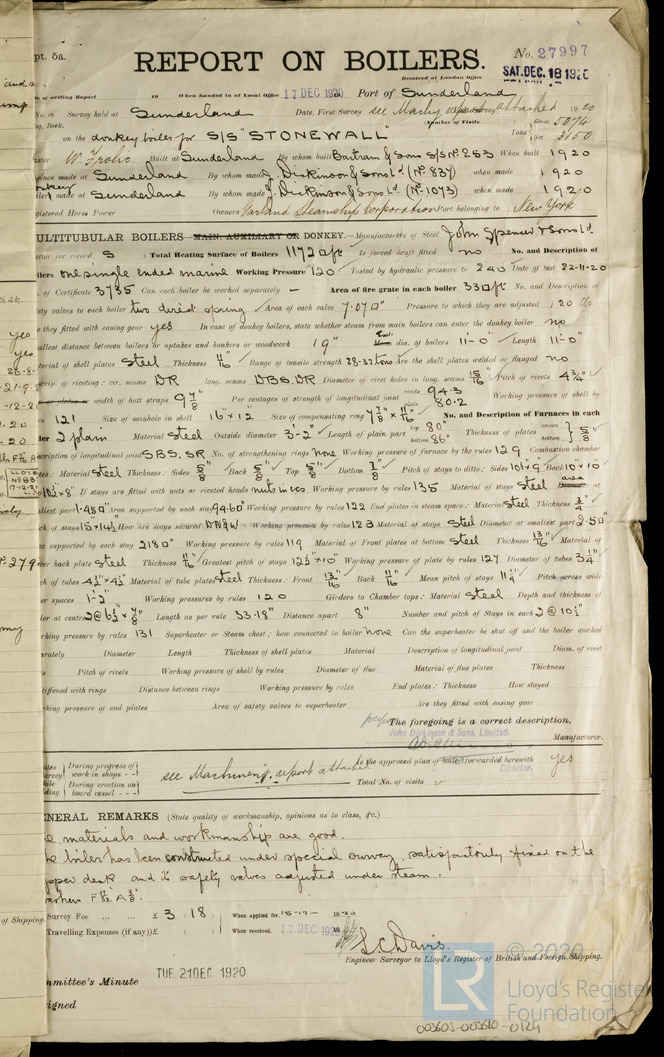 pt. 5a.
REPORT ON BOILERS.
No. 27997
Received at London Office
SAT. DEC. 18 1920
of writing Report 19 When handed in at Local Office 17 DEC 1920 Port of Sunderland
No. in Survey held at Sunderland Date, First Survey see Machy report attached 1920
Reg. Book. (Number of Visits) Gross 5074
on the donkey boiler for S/S "STONEWALL" Tons Net 3150
ster W. Frolic Built at Sunderland By whom built Bartram & Sons S/S No. 253 When built 1920
gines made at Sunderland By whom made J. Dickinson & Sons Ld. (No. 837) when made 1920
oilers made at Sunderland By whom made J. Dickinson & Sons Ld. (No. 1073) when made 1920
gistered Horse Power Owners Garland Steamship Corporation Port belonging to New York
ULTITUBULAR BOILERS MAIN, AUXILIARY OR DONKEY.—Manufacturers of Steel John Spencer & Sons Ld.
etter for record S Total Heating Surface of Boilers 1172 sq ft Is forced draft fitted no No. and Description of
ilers one single ended marine Working Pressure 120 Tested by hydraulic pressure to 240 Date of test 22-11-20
. of Certificate 3735 Can each boiler be worked separately — Area of fire grate in each boiler 33 sq ft No. and Description of
ety valves to each boiler two direct spring Area of each valve 7.07 sq" Pressure to which they are adjusted 120 lbs
e they fitted with easing gear yes In case of donkey boilers, state whether steam from main boilers can enter the donkey boiler no
allest distance between boilers or uptakes and bunkers or woodwork 19" dia. of boilers 11'-0" Length 11'-0"
terial of shell plates Steel Thickness 11/16" Range of tensile strength 28-32 tons Are the shell plates welded or flanged no
crip. of riveting: cir. seams DR long. seams DBS. DR Diameter of rivet holes in long. seams 15/16" Pitch of rivets 4 3/4"
width of butt straps 9 7/8" Per centages of strength of longitudinal joint rivets 94.3 plate 80.2 Working pressure of shell by
es 121 Size of manhole in shell 16" x 12" Size of compensating ring 7 1/8" x 11/16" No. and Description of Furnaces in each
ler 2 plain Material Steel Outside diameter 3'-2" Length of plain part top 80" bottom 86" Thickness of plates crown bottom 5/8"
scription of longitudinal joint SBS. SR No. of strengthening rings none Working pressure of furnace by the rules 129 Combustion chamber
tes: Material Steel Thickness: Sides 5/8" Back 5/8" Top 5/8" Bottom 7/8" Pitch of stays to ditto: Sides 10 1/2 x 9" Back 10" x 10"
10 1/2 x 8" If stays are fitted with nuts or riveted heads nuts in ccs Working pressure by rules 135 Material of stays Steel area at
allest part 1.45 sq" Area supported by each stay 94.60" Working pressure by rules 122 End plates in steam space: Material Steel Thickness 3/4"
ch of stays 15 x 14 1/2 How are stays secured DN&W Working pressure by rules 123 Material of stays Steel Diameter at smallest part 2.50"
a supported by each stay 218 sq" Working pressure by rules 119 Material of Front plates at bottom Steel Thickness 13/16" Material of
wer back plate Steel Thickness 11/16" Greatest pitch of stays 12 1/2" x 10" Working pressure of plate by rules 127 Diameter of tubes 3 1/4"
ch of tubes 4 1/2" x 4 1/2" Material of tube plates Steel Thickness: Front 13/16" Back 11/16" Mean pitch of stays 11 1/4" Pitch across wide
er spaces 1'-2" Working pressures by rules 120 Girders to Chamber tops: Material Steel Depth and thickness of
er at centre 2 @ 6 1/2" x 7/8" Length as per rule 33.18" Distance apart 8" Number and pitch of Stays in each 2 @ 10 1/2"
rking pressure by rules 131 Superheater or Steam chest; how connected to boiler none Can the superheater be shut off and the boiler worked
arately Diameter Length Thickness of shell plates Material Description of longitudinal joint Diam. of rivet
s Pitch of rivets Working pressure of shell by rules Diameter of flue Material of flue plates Thickness
stiffened with rings Distance between rings Working pressure by rules End plates: Thickness How stayed
rking pressure of end plates Area of safety valves to superheater Are they fitted with easing gear
The foregoing is a correct description,
John Dickinson & Sons, Limited.
Manufacturer.
Director.
During progress of work in shops - -
During erection on board vessel - - -
see Machinery report attached
Is the approved plan of boiler forwarded herewith yes
Total No. of visits
ENERAL REMARKS (State quality of workmanship, opinions as to class, &c.)
e materials and workmanship are good.
he boiler has been constructed under special survey, satisfactorily fixed on the
pper deck and its safety valves adjusted under steam.
Survey Fee ... ... £ 3 : 18 : When applied for, 15-12-1920
Travelling Expenses (if any) £ : : When received, 17 DEC 1920
S.C. Davis.
Engineer Surveyor to Lloyd's Register of British and Foreign Shipping.
mmittee's Minute TUE. 21 DEC 1920
signed
of Shipping.
© 2020
LR
Lloyd's Register
Foundation
003603-003610-0124